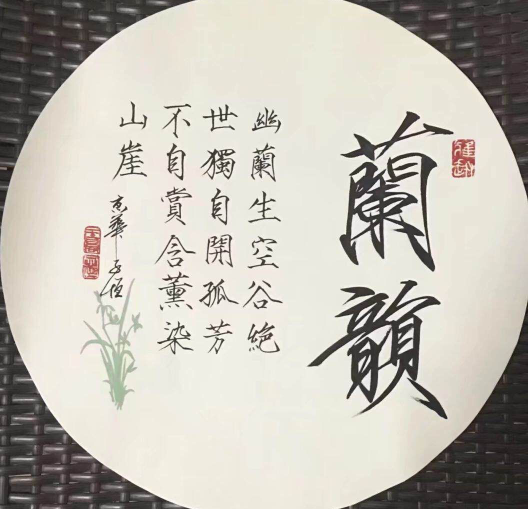 蘭韻
幽蘭生空谷絶
世獨自開孤芳
不自賞含薰染
山崖